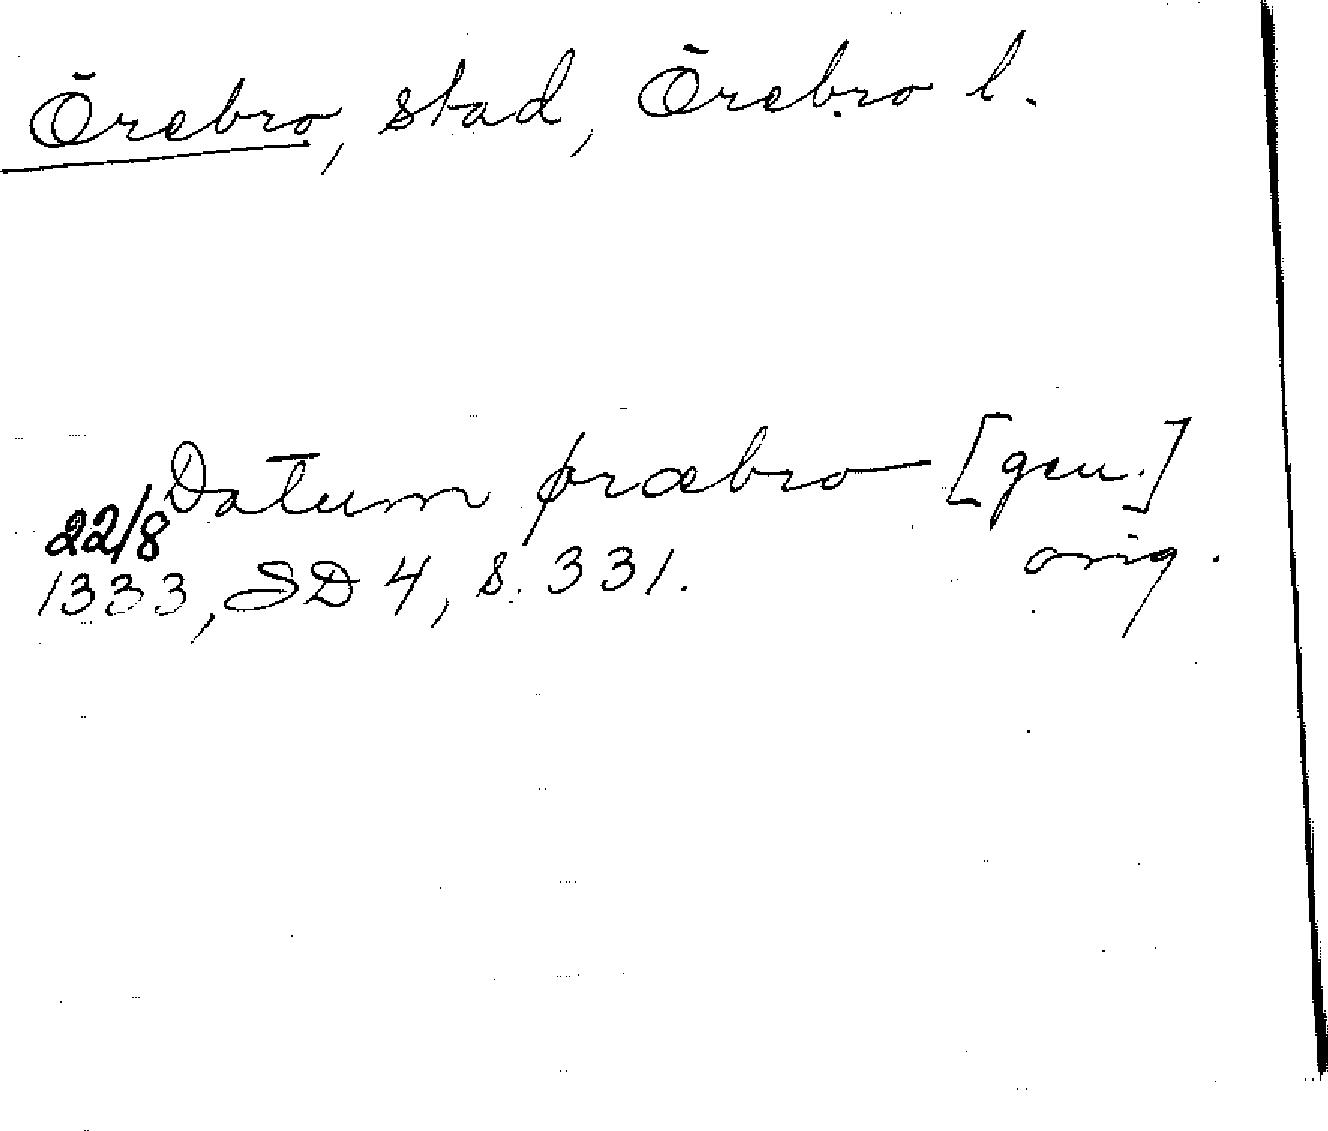 Örebro, stad, Örebro l.
Datum øræbro [gen.]
22/8
1333, SD 4, s. 331. orig.